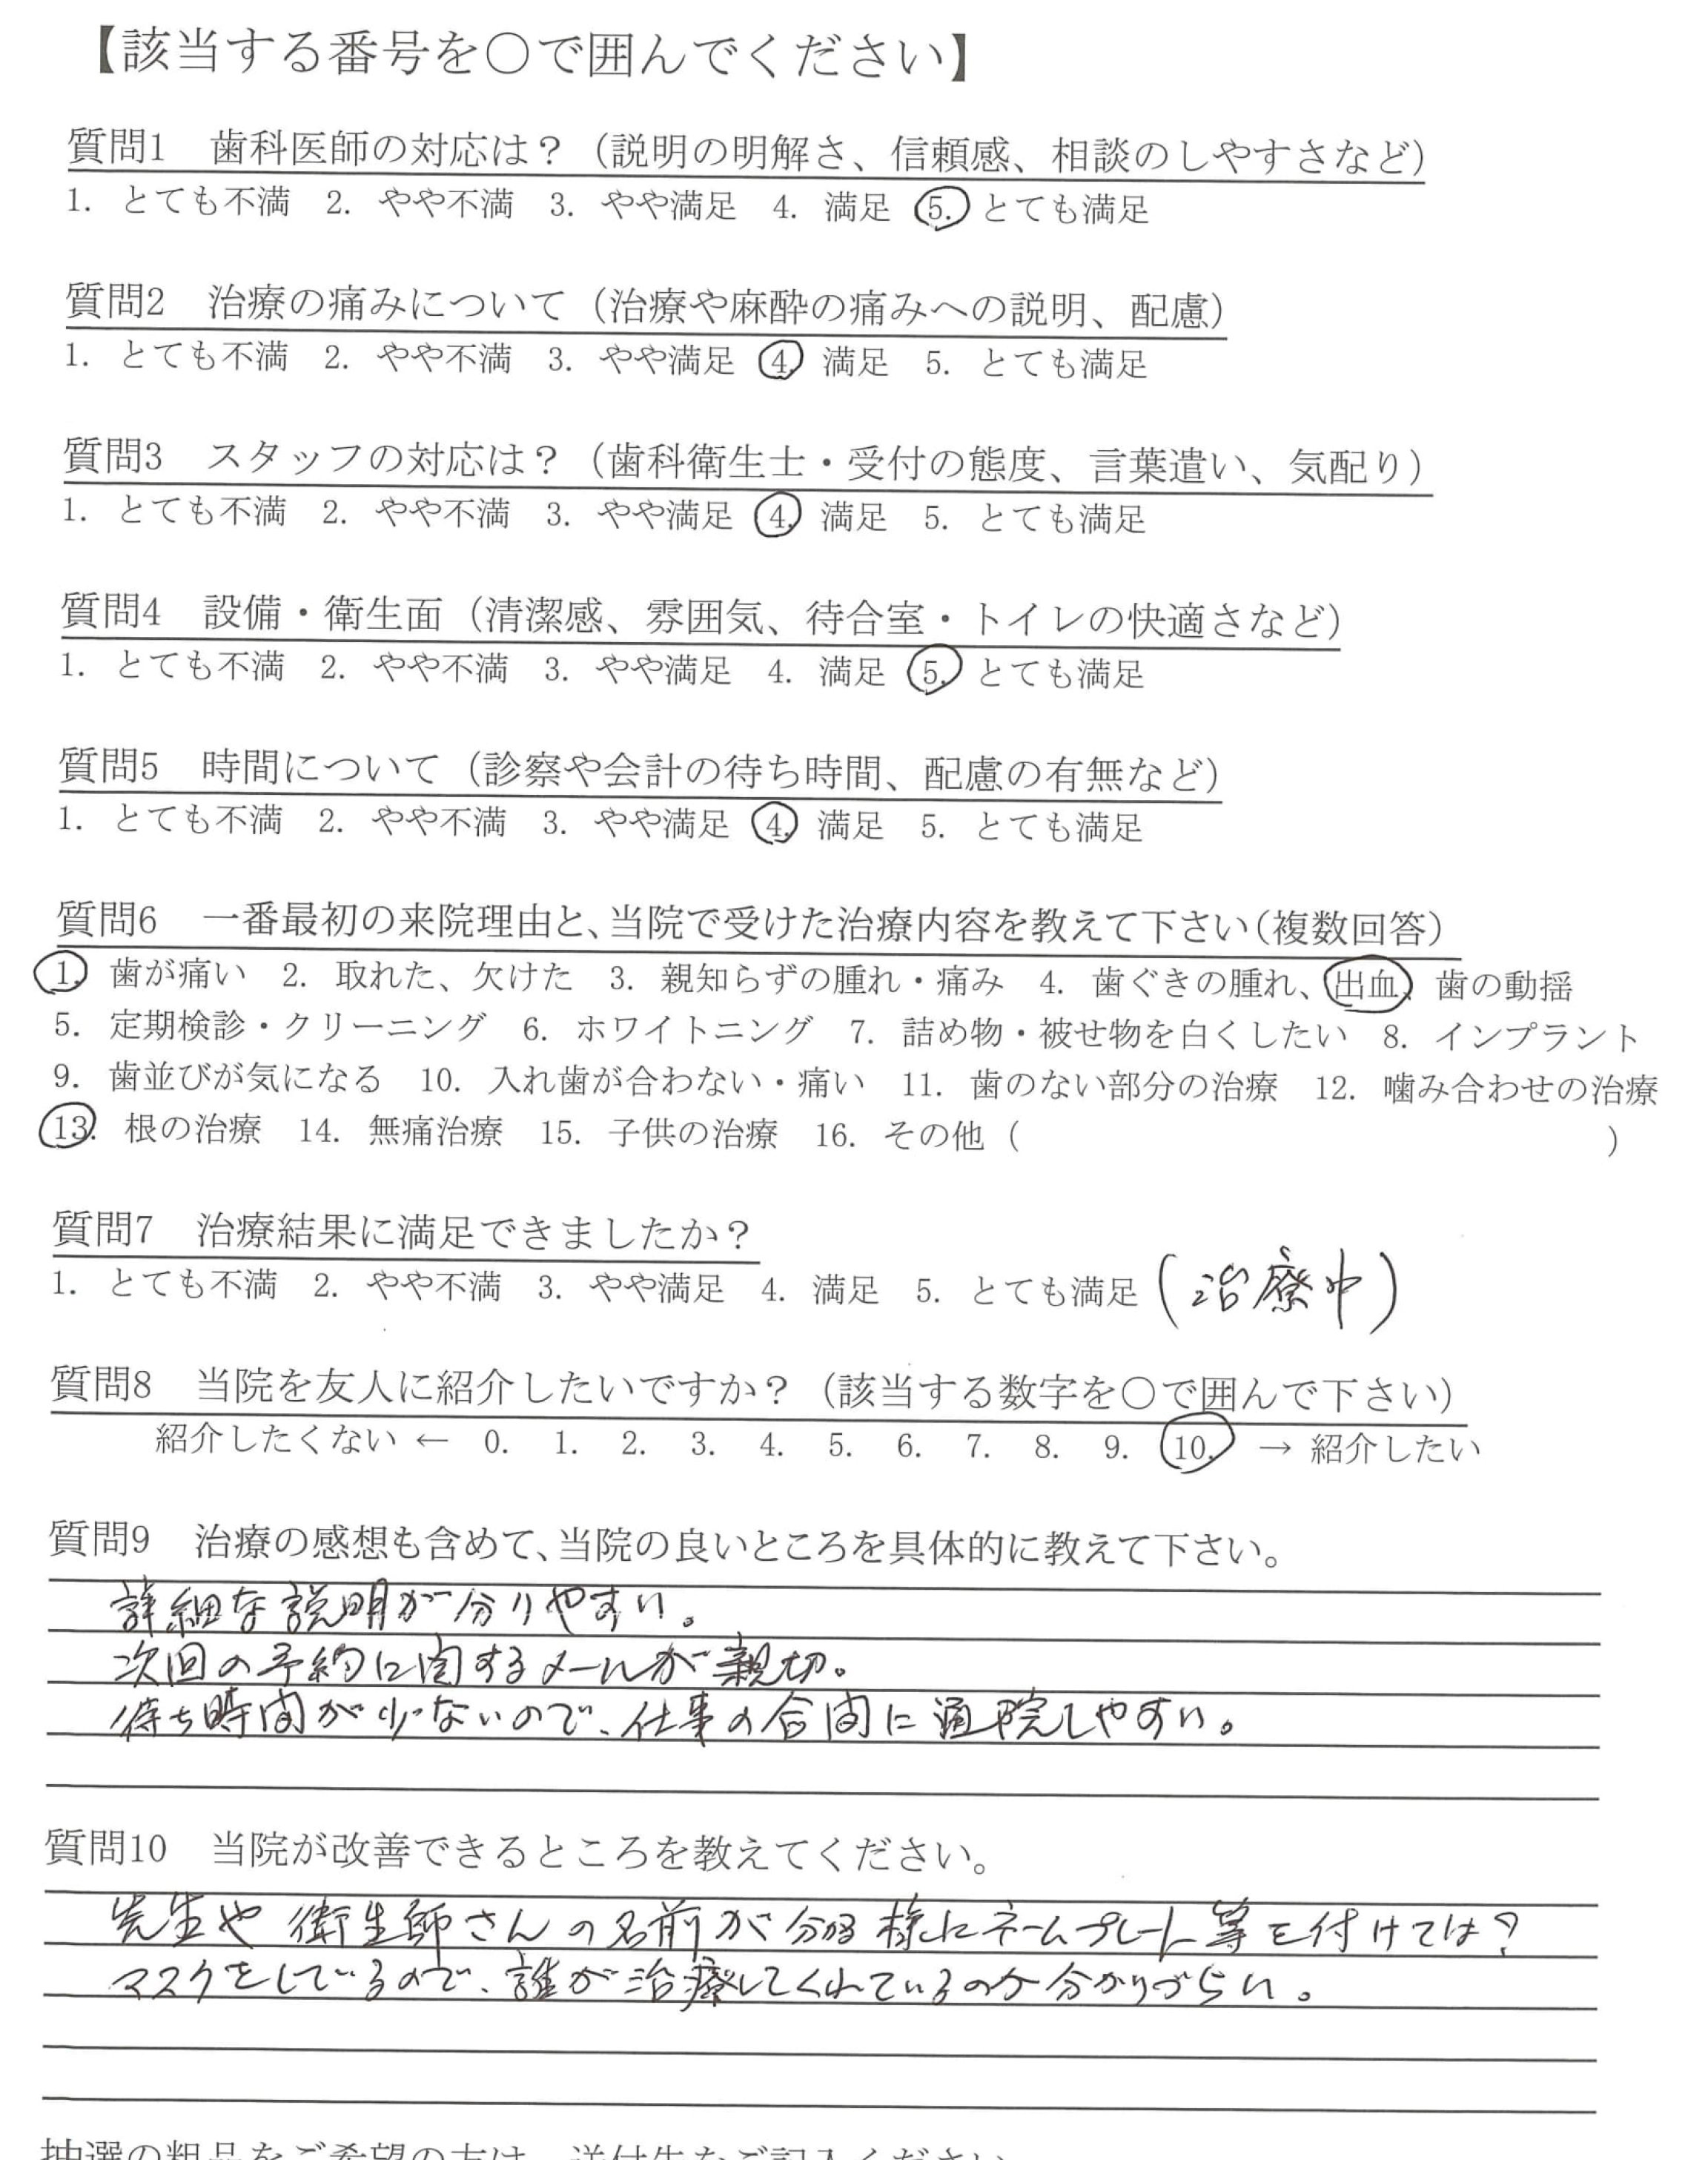 【該当する番号を〇で囲んでください】
質問1 歯科医師の対応は？（説明の明解さ、信頼感、相談のしやすさなど）
1. とても不満 2. やや不満 3. やや満足 4. 満足 5. とても満足
質問2 治療の痛みについて（治療や麻酔の痛みへの説明、配慮）
1. とても不満 2. やや不満 3. やや満足 4. 満足 5. とても満足
質問3 スタッフの対応は？（歯科衛生士・受付の態度、言葉遣い、気配り）
1. とても不満 2. やや不満 3. やや満足 4. 満足 5. とても満足
質問4 設備・衛生面（清潔感、雰囲気、待合室・トイレの快適さなど）
1. とても不満 2. やや不満 3. やや満足 4. 満足 5. とても満足
質問5 時間について（診察や会計の待ち時間、配慮の有無など）
1. とても不満 2. やや不満 3. やや満足 4. 満足 5. とても満足
質問6 一番最初の来院理由と、当院で受けた治療内容を教えて下さい（複数回答）
1. 歯が痛い 2. 取れた、欠けた 3. 親知らずの腫れ・痛み 4. 歯ぐきの腫れ、出血、歯の動揺
5. 定期検診・クリーニング 6. ホワイトニング 7. 詰め物・被せ物を白くしたい 8. インプラント
9. 歯並びが気になる 10. 入れ歯が合わない・痛い 11. 歯のない部分の治療 12. 噛み合わせの治療
13. 根の治療 14. 無痛治療 15. 子供の治療 16. その他（ ）
質問7 治療結果に満足できましたか？
1. とても不満 2. やや不満 3. やや満足 4. 満足 5. とても満足（治療中）
質問8 当院を友人に紹介したいですか？（該当する数字を〇で囲んで下さい）
紹介したくない ← 0. 1. 2. 3. 4. 5. 6. 7. 8. 9. 10. → 紹介したい
質問9 治療の感想も含めて、当院の良いところを具体的に教えて下さい。
詳細な説明が分りやすい。
次回の予約に関するメールが親切。
待ち時間が少ないので、仕事の合間に通院しやすい。
質問10 当院が改善できるところを教えてください。
先生や衛生師さんの名前が分る様にネームプレート等を付けては？
マスクをしているので、誰が治療してくれているのか分かりづらい。
抽選の粗品をご希望の方は、送付先をご記入ください